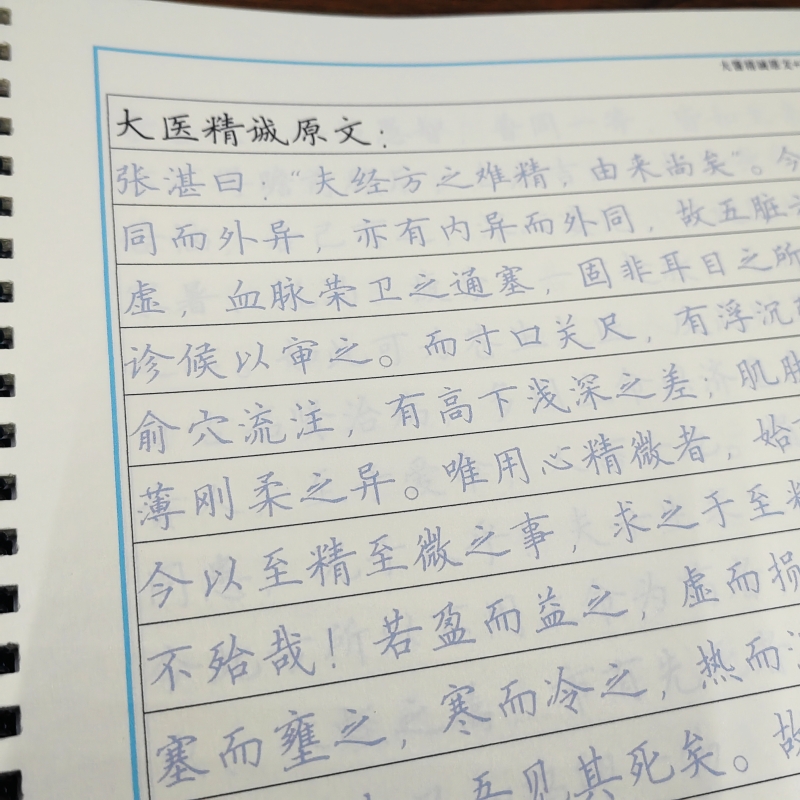 大医精诚原文
大医精诚原文：
张湛曰：“夫经方之难精，由来尚矣”。今
同而外异，亦有内异而外同，故五脏六
虚，血脉荣卫之通塞，固非耳目之所
诊候以审之。而寸口关尺，有浮沉
俞穴流注，有高下浅深之差，肌肤
薄刚柔之异。唯用心精微者，始
今以至精至微之事，求之于至粗
不殆哉！若盈而益之，虚而损
塞而壅之，寒而冷之，热而
吾见其死矣。故